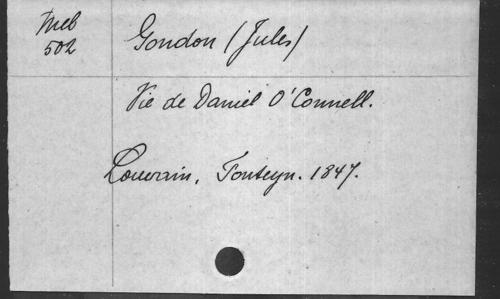 Meb
502
Gondon (Jules)
Vie de Daniel O'Connell.
Louvain, Fonteyn. 1847.